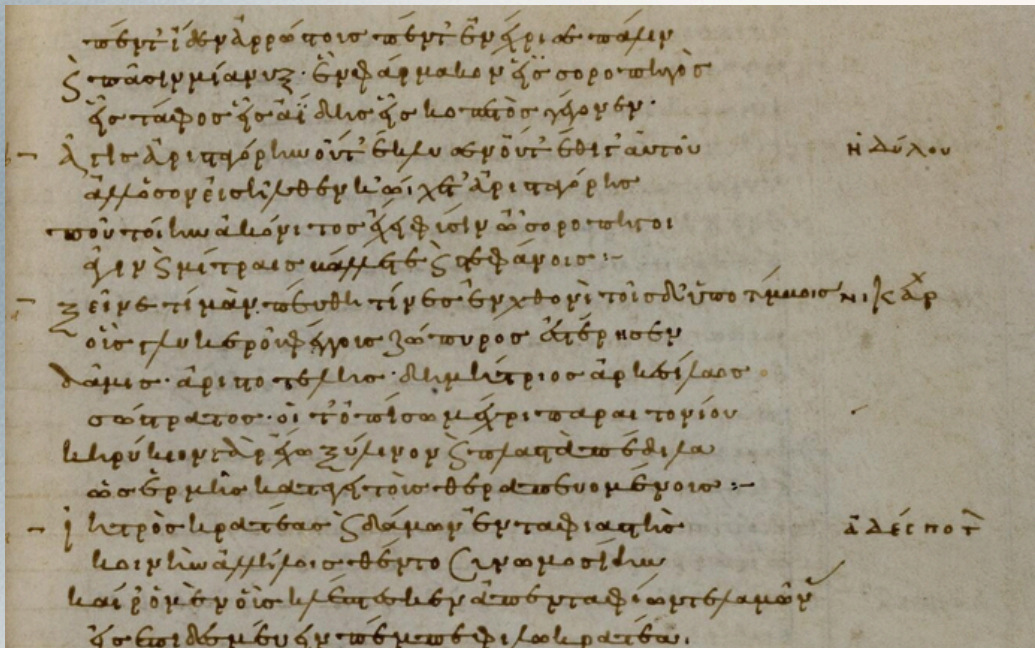 πέντ' ἴδεν ἀρρώστοις πέντ' ἐνέχρισε πάλιν
καὶ πᾶσιν μία νυξ· ἓν φάρμακον εἷς σοροπηγὸς
εἷς τάφος εἷς ἀΐδης εἷς κοπετὸς γέγονεν·
ἆγις ἀρισταγόρην οὔτ' ἔκλυσεν οὔτ' ἔθιγ' αὐτοῦ ηδύλου
ἀλλ' ὅσον εἰσῆλθεν κᾤχετ' ἀρισταγόρης
ποῦ τοίην ἀκόνιτος ἔχει φύσιν ὦ σοροπηγοὶ
ἆγιν καὶ μίτραις βάλλετε καὶ στεφάνοις:~
ξεῖνε τί μὰν πεύθῃ τίνες ἐν χθονὶ τοῖσδ' ὑπὸ τύμβοις νικάρχ
οἷς γλυκεροῦ φέγγοις ζώπυρος ἐστέρησεν
δᾶμις· ἀριστοτέλης· δημήτριος ἀρκεσίλαος
σώστρατος· οἵ τ' ὀπίσω μέχρι παραιτονίου
κηρύκιον γὰρ ἔχω ξύλινον καὶ πλαστὰ πέδιλα
ὡς ἑρμῆς κατάγει τοῖς θεραπευομένοις:~
ἰητρὸς κρατέας καὶ δάμων ἐνταφιαστὴς ἀδέσποτ
κοινὴν ἀλλήλοις θέντο συνωμοσίην
καί ῥ' ὁ μὲν οἷς κλέπτεσκεν ἀπ' ἐνταφίων τελαμῶν
εἰς ἐπιδεσμεύειν πέμπε φίλω κρατέα·